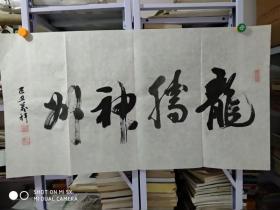 龍騰神州
己丑義祥
SHOT ON MI 5X
MI DUAL CAMERA